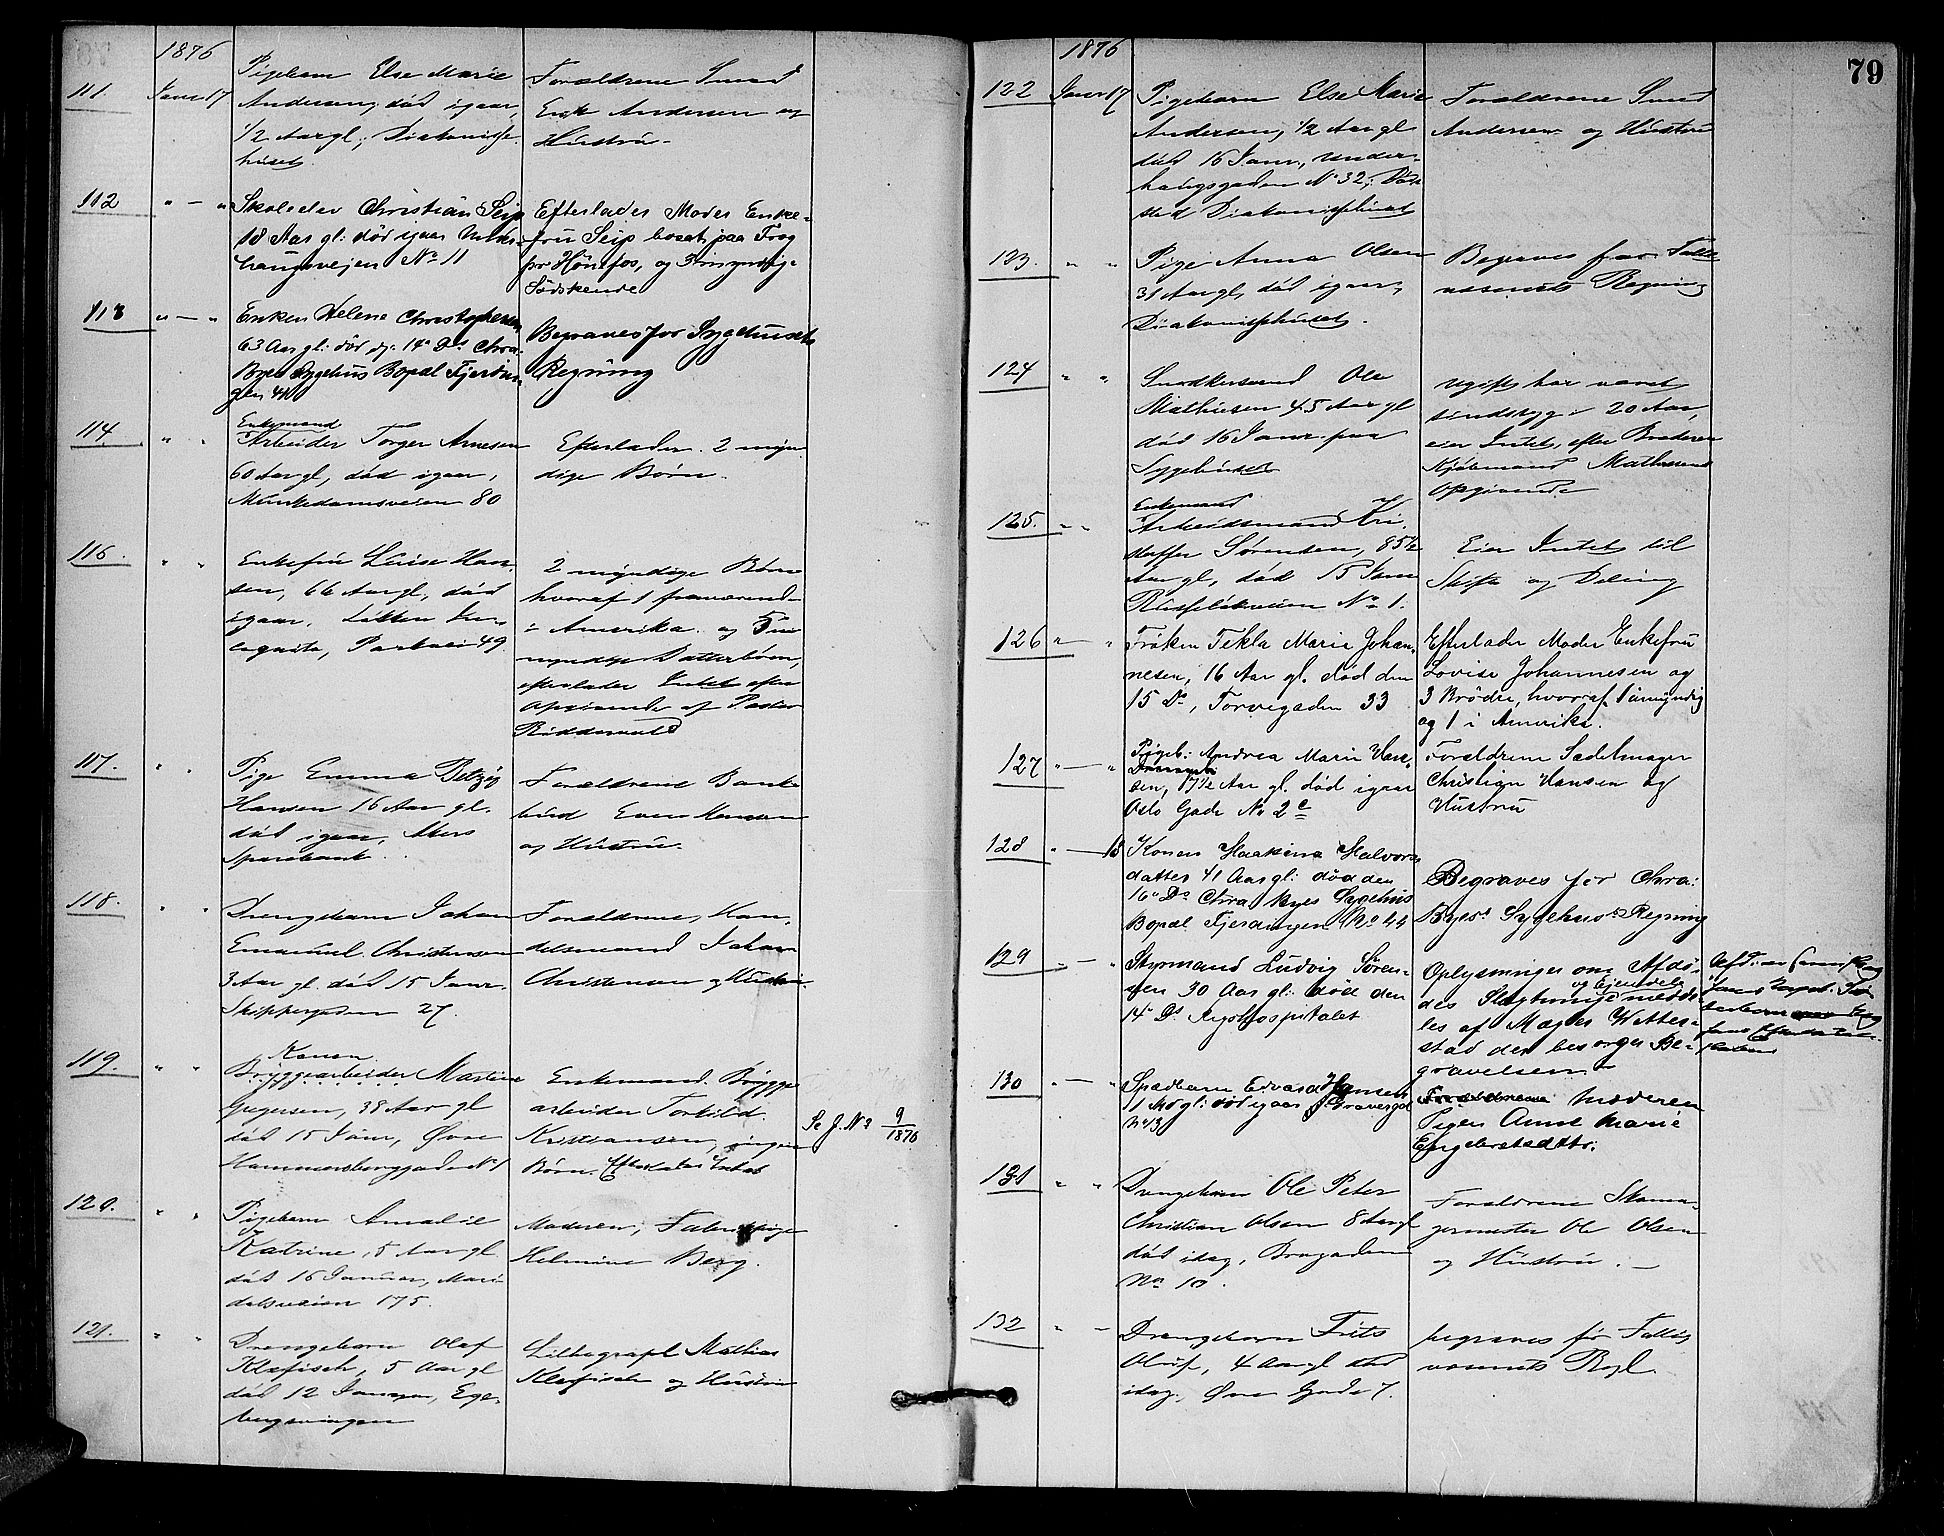 1876
111
Janr 17
Pigebarn Else Marie
Andersen, død igaar,
1/2 Aar gl; Diakonisse
huset.
Forældrene Smed
Andersen og
Hustru
112
" — "
Skoleelev Christian Seip
18 Aar gl: død igaar Ullevs-
haugsvejen No 11
Efterlader Moder Enke-
fru Seip bosat paa
pr Hönefos, og 3 umyndige
Södskende
113
" — "
Enken Helene Christophersen
63 Aar gl: död d: 14de Ds Chra
Byes Sygehus Bopæl Fjerdin-
gen 44
Begraves for Sygehusets
Regning
114.
" "
Enkemand
Arbeider Torger Arnesen
60 Aar gl, død igaar,
Munkedamsveien 80
Efterlader 2 myn
dige Børn.
116.
" "
Enkefru Lovise Han
sen, 66 Aar gl, død
igaar, Løkken
Parkvei 49
2 myndige Børn
hvoraf 1 fraværende
i Amerika og 5 u
myndige Datterbørn,
efterlader Intet efter
Opgivende af Pastor
Riddervold
117.
" "
Pige Emma Betzy
Hansen 16 Aar gl.
død igaar, Akers
Sparebank.
Forældrene Bank
bud Even Hansen
og Hustru.
118.
" "
Drengebarn Johan
Emanuel Christensen
3 Aar gl død 15 Janr.
Skippergaden 27.
Forældrene, Han
delsmand Johan
Christensen og Hustru
119.
" "
Konen
Bryggearbeider Martine
Gregersen, 38 Aar gl
død 15 Janr, Øvre
Hammersborggade No 1
Enkemand Brygge
arbeider Torkild
Kristiansen, ingen
Børn. Efterlader Intet
Se J. No 9/1876
120.
" "
Pigebarn Amalie
Katrine, 5 Aar gl
død 16 Januar, Mari
dalsveien 175.
Moderen, Fabrikpige
Helmine Berg.
121.
" "
Drengebarn Olaf
Klafisch, 5 Aar gl
død 12 Januar, Ege-
bergsvingen
Lithograph Mathias
Klafisch og Hustru
79
1876
122
Janr 17
Pigebarn Else Marie
Andersen, 1/2 Aar gl
død 16 Janr, Uldens-
haugsgaden No 32; Døds
sted Diakonissehuset
Forældrene Smed
Andersen og Hustru
123.
" "
Pige Anna Olsen
31 Aar gl, død igaar,
Diakonissehuset.
Begraves for Fattig
væsenets Regning
124
" "
Snedkersvend Ole
Mathiesen 45 Aar gl
død 16 Janr. paa
Sygehuset
Ugift har været
sindssyg i 20 Aar,
eier Intet, efter Broderen
Kjøbmand Mathiesens
Opgivende
125.
" "
Enkemand
Arbeidsmand Kri
stoffer Sørensen, 85 1/2
Aar gl, død 15 Janr
Rusløkveien No 1.
Eier Intet til
Skifte og Deling
126
" — "
Fröken Tekla Marie Johan
nesen, 16 Aar gl. död den
15 Ds, Torvegaden 33
Efterlader Moder Enkefru
Lovise Johannesen og
3 Brödre, hvoraf 1 umyndig
og 1 i Amerika.
127
" — "
Pigeb: Andrea Marie Han-
sen, 17 1/2 Aar gl. död igaar
Oslo Gade No 2 c
Forældrene Sadelmager
Christian Hansen og
Hustru
128
" — 18
Konen Haakine Halvors
datter 41 Aar gl: död den
16de Ds Chra Byes Sygehus
Bopæl Fjerdingen No 44
Begraves for Chra:
Byes Sygehus's Regning
129
" — "
Styrmand Ludvig Søren-
sen 30 Aar gl: död den
14de Ds Rigshospitalet
Oplysninger om Afdö-
og Ejendele
des Slægtninge medde-
les af Mægler Wetter-
stad der besørger Be-
gravelsen
130
" — "
Spædbarn Edvard Hansen
1 Md gl: död igaar
No 13
Forældrene Moderen
Pigen Anne Marie
Engebretsdtr.
131
" "
Drengebarn Ole Peter
Christian Olsen 8 Aar gl
død idag, Brogaden
No 10.
Forældrene Skoma
germester Ole Olsen
og Hustru. —
132
" —
Drengebarn Frits
Oluf, 4 Aar gl død
idag, Øvre Gade 7.
begraves for Fattig
væsenets Regl.